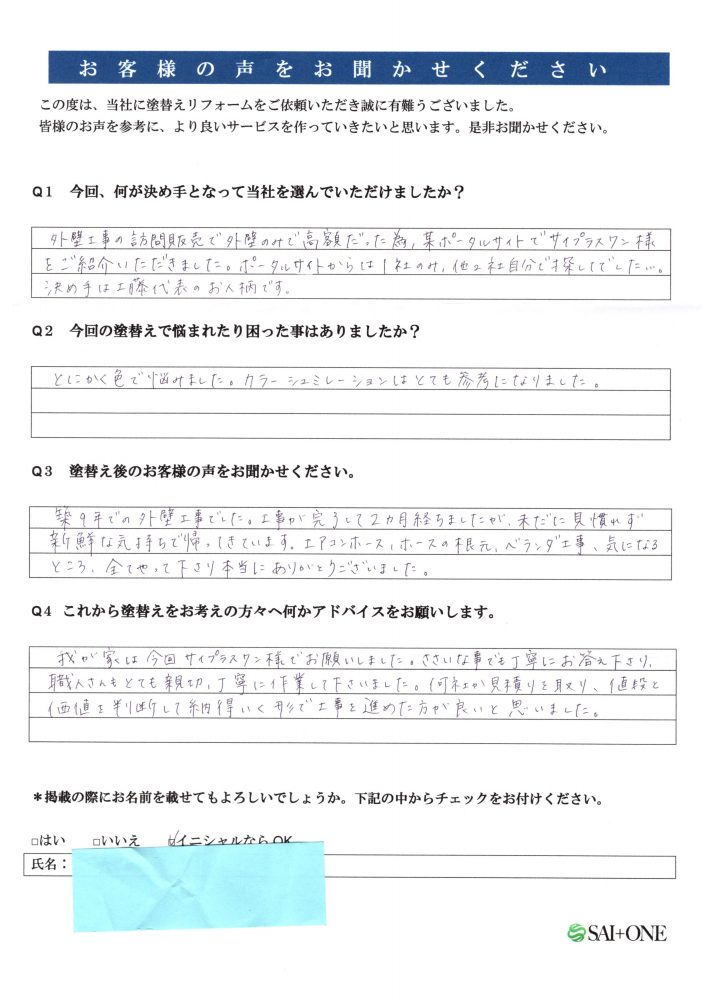 お客様の声をお聞かせください
この度は、当社に塗替えリフォームをご依頼いただき誠に有難うございました。
皆様のお声を参考に、より良いサービスを作っていきたいと思います。是非お聞かせください。
Q1 今回、何が決め手となって当社を選んでいただけましたか？
外壁工事の訪問販売で外壁のみで高額だった為，某ポータルサイトでサイプラスワン様
をご紹介いただきました。ポータルサイトからは1社のみ，他2社自分で探してでした。
決め手は工藤代表のお人柄です。
Q2 今回の塗替えで悩まれたり困った事はありましたか？
とにかく色で悩みました。カラーシュミレーションはとても参考になりました。
Q3 塗替え後のお客様の声をお聞かせください。
築9年での外壁工事でした。工事が完了して2カ月経ちましたが、未だに見慣れず
新鮮な気持ちで帰ってきています。エアコンホース，ホースの根元，ベランダ工事、気になる
ところ、全てやって下さり本当にありがとうございました。
Q4 これから塗替えをお考えの方々へ何かアドバイスをお願いします。
我が家は今回サイプラスワン様でお願いしました。ささいな事でも丁寧にお答え下さり，
職人さんもとても親切，丁寧に作業して下さいました。何社か見積りを取り、値段と
価値を判断して納得いく形で工事を進めた方が良いと思いました。
＊掲載の際にお名前を載せてもよろしいでしょうか。下記の中からチェックをお付けください。
□はい □いいえ ☑イニシャルならOK
氏名：
SAI+ONE